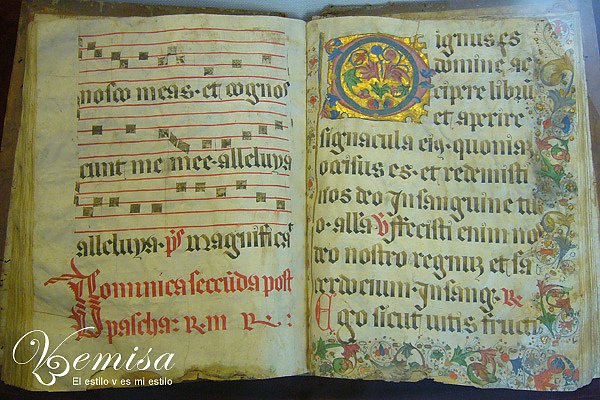 nosco meas. et cognos
cunt me mee. alleluya
alleluya. ps magnifica
Dominica secunda post
pascha: R m R :
Dignus es
domine ac
cipere librū
et aprire
signacula eiꝰ. quoniā
occisus es. et redemisti
nos deo In sanguine tu
o. alla V ffecisti enim no
deo nostro regnuz et sa
cerdocium In sang. Re
Ego sicut uitis fructi
Vemisa
El estilo v es mi estilo